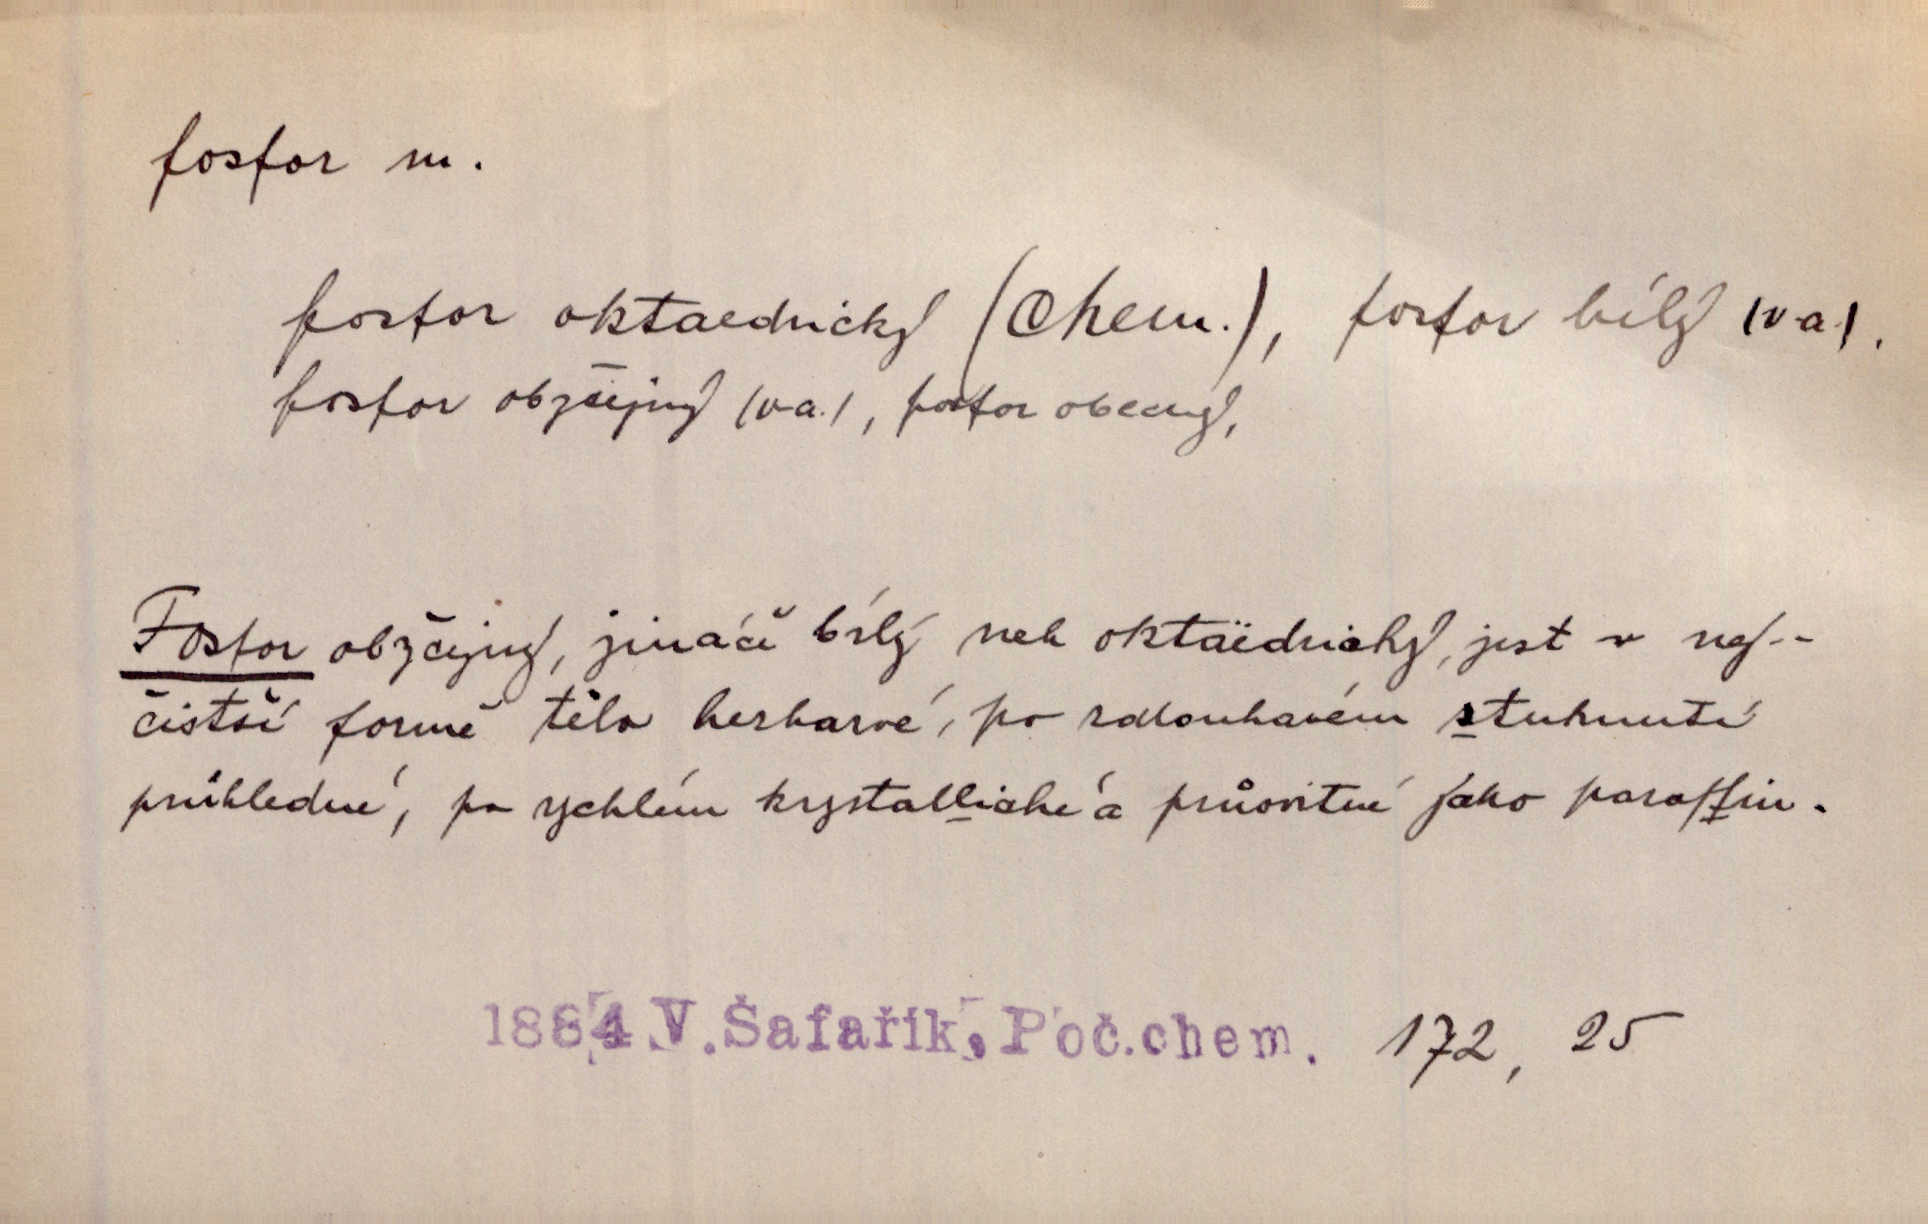 fosfor m.
fosfor oktaedrický (Chem.), fosfor bílý (v.a.),
fosfor obyčejný (v.a.), fosfor obecný,
Fosfor obyčejný, jináče bílý neb oktaëdrický, jest v nej-
čistší formě tělo bezbarvé, po zdlouhavém stuhnutí
průhledné, po rychlém krystallické a průsvitné jako paraffin.
1884 V. Šafařík, Poč.chem. 172, 25